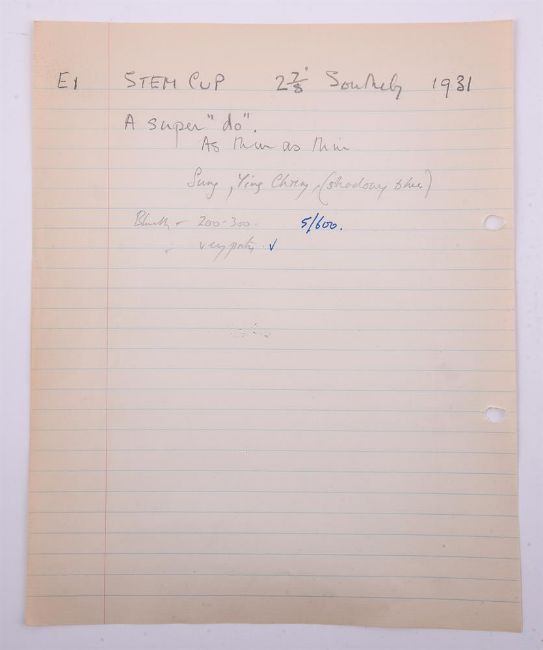 E1 STEM CUP 2 7/8" Sotheby 1931
A super "do".
As thin as thin
Sung, Ying Ching, (shadowy blue)
200-300. 5/600.
very pretty ✓